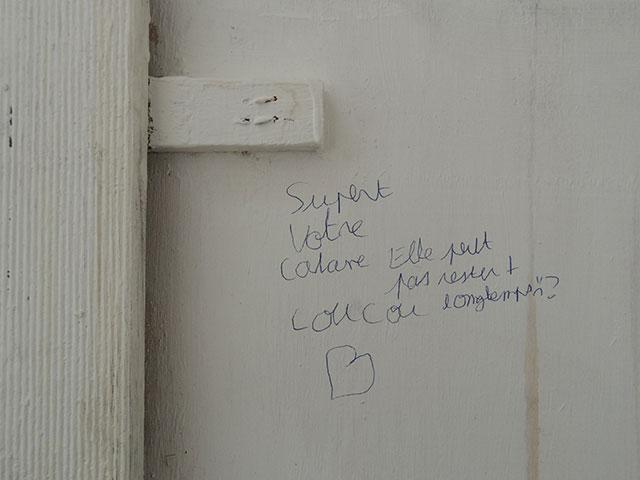 Supert
Votre
Cabane Elle peut
pas rester +
COUCOU longtemps ?